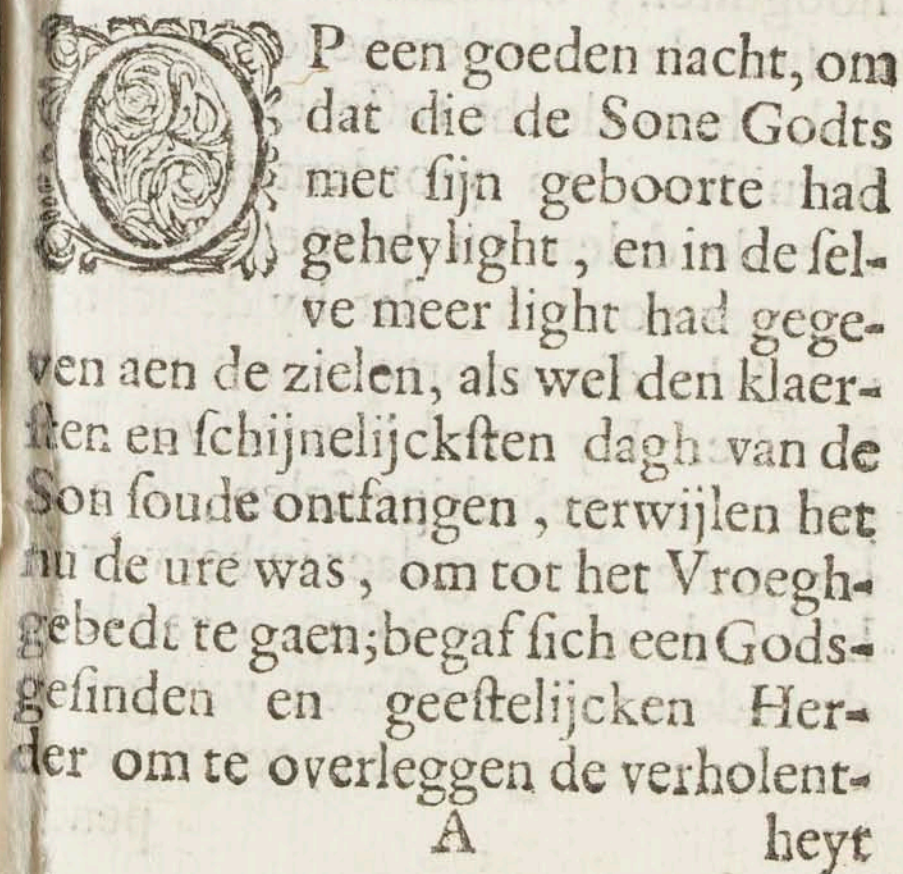 OP een goeden nacht, om
dat die de Sone Godts
met ſijn geboorte had
geheylight, en in de ſel-
ve meer light had gege-
ven aen de zielen, als wel den klaer-
ſten en ſchijnelijckſten dagh van de
Son ſoude ontfangen, terwijlen het
nu de ure was, om tot het Vroegh-
gebedt te gaen; begaf ſich een Gods-
geſinden en geeſtelijcken Her-
der om te overleggen de verholent-
A heyt